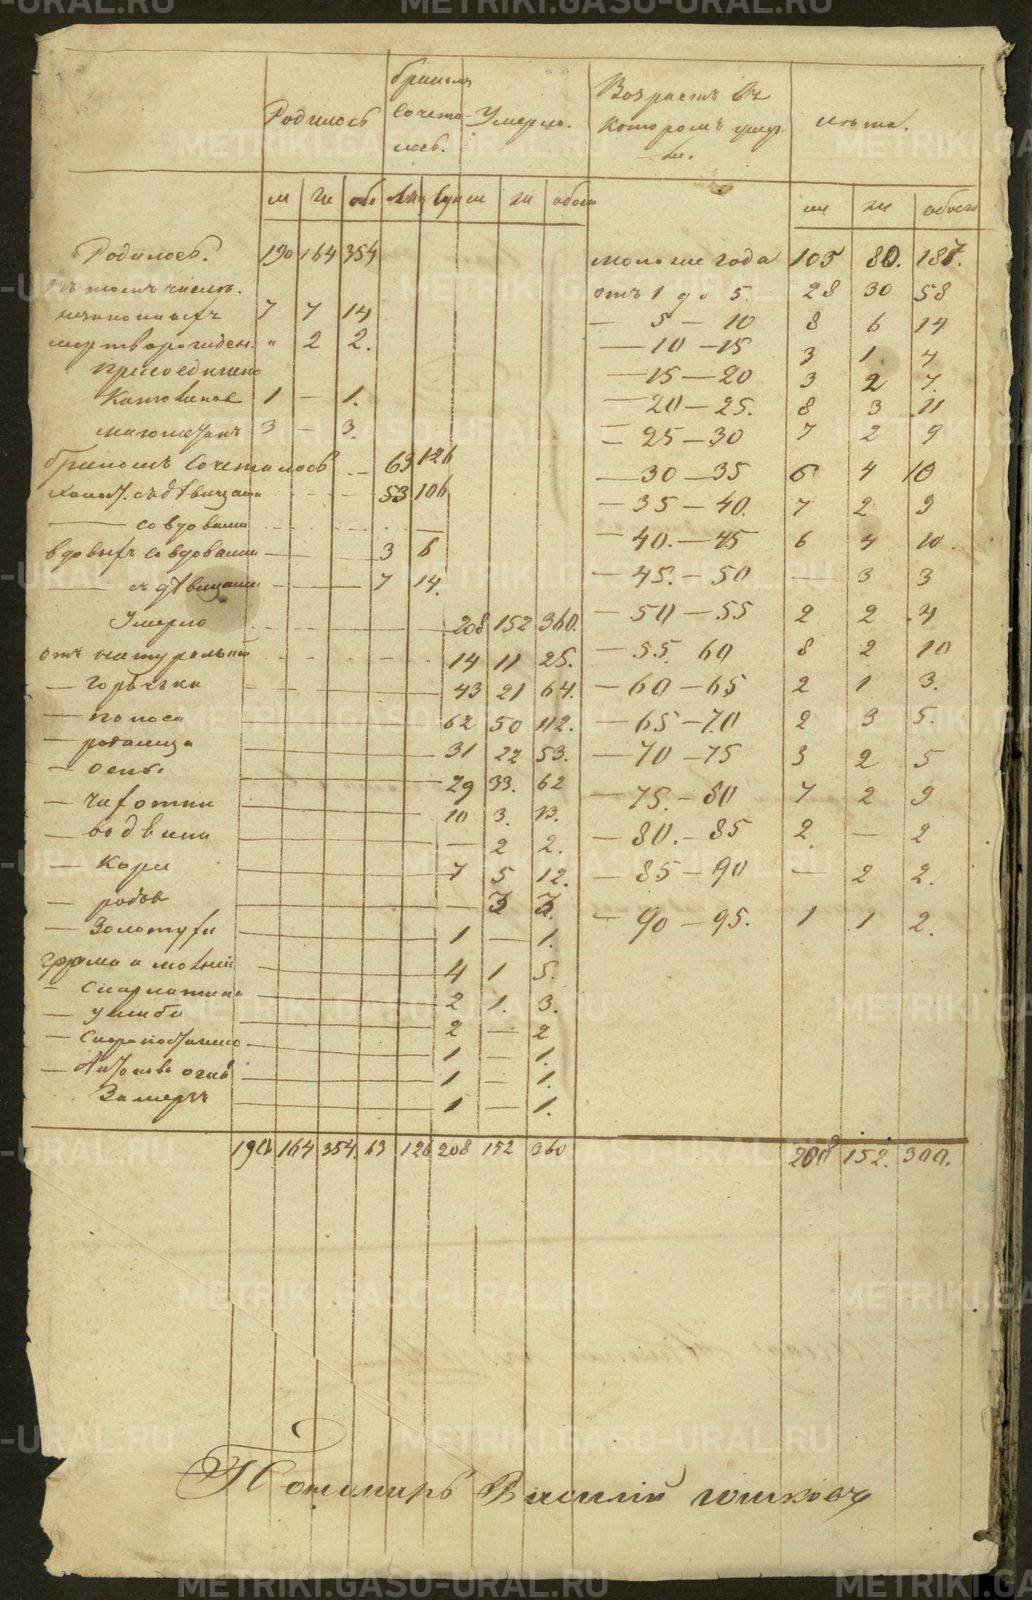 Родилось
Бракомъ
Сочета-
лось.
Умерло.
Возрастъ въ
которомъ умер-
ли.
м ж обо м ж обоего
м ж обоего
Родилось. 190 164 354
въ томъ числѣ.
незаконныхъ 7 7 14
мертворожден. " 2 2.
присоединено
1 — 1.
магометанъ 3 — 3.
бракомъ сочеталось 63 126
холост. съ дѣвицами 53 106
— со вдовами — —
вдовыхъ со вдовами 3 6
— съ дѣвицами 7 14.
Умерло 208 152 360.
отъ натуральной 14 11 25.
— горячки 43 21 64.
— поноса 62 50 112.
— родимца 31 22 53.
— оспы. 29 33. 62
— чахотки 10 3. 13.
— водянки — 2 2.
— кори 7 5 12.
— родов — 3 3.
— Золотухи 1 — 1.
4 1 5.
— скарлатина 2 1. 3.
— ушиба 2 — 2
— скоропостижно 1 — 1.
— Антонова огня 1 — 1.
Замерзъ 1 — 1.
190 164 354. 63 126 208 152 360
моложе года 105 80. 187.
отъ 1 до 5. 28 30 58
— 5 — 10 8 6 14
— 10 — 15 3 1. 4
— 15 — 20 3 2 7.
— 20 — 25. 8 3 11
— 25 — 30 7 2 9
— 30 — 35 6 4 10
— 35 — 40. 7 2 9
— 40. — 45 6 4 10.
— 45. — 50 — 3 3
— 50 — 55 2 2 4
— 55. 60 8 2 10
— 60 — 65 2 1 3.
— 65 — 70 2 3 5.
— 70 — 75 3 2 5
— 75. — 80 7 2 9
— 80. — 85 2. — 2
— 85 — 90 — 2 2.
— 90 — 95. 1 1 2.
208 152. 300.
Василій
METRIKI.GASO-URAL.RU